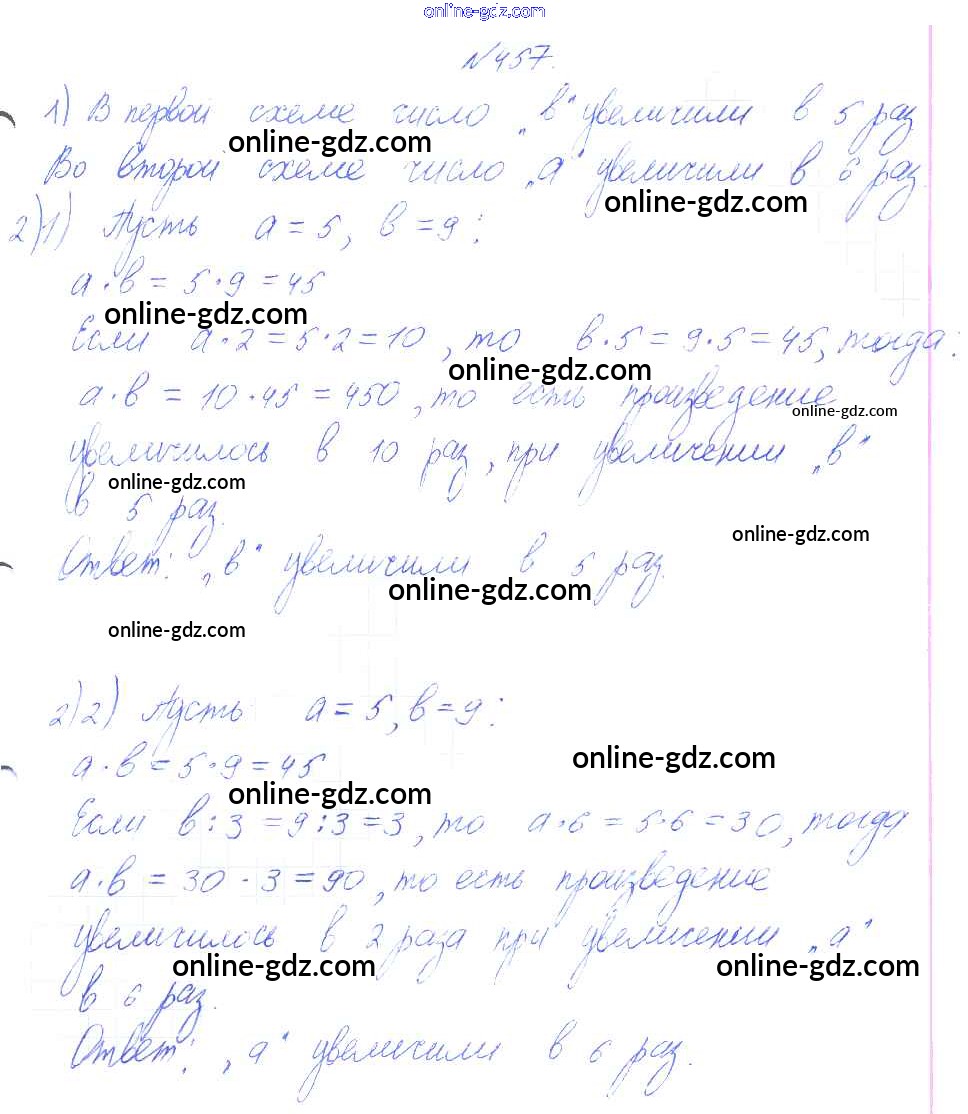 online-gdz.com
№457.
1) В первой схеме число „в“ увеличили в 5 раз
online-gdz.com
Во второй схеме число „а“ увеличили в 6 раз.
online-gdz.com
2)1) Пусть а = 5, в = 9:
а·в = 5·9 = 45
online-gdz.com
Если а·2 = 5·2 = 10, то в·5 = 9·5 = 45, тогда:
online-gdz.com
а·в = 10·45 = 450, то есть произведение
online-gdz.com
увеличилось в 10 раз, при увеличении „в“
online-gdz.com
в 5 раз.
online-gdz.com
Ответ: „в“ увеличили в 5 раз.
online-gdz.com
online-gdz.com
2)2) Пусть а = 5, в = 9:
а·в = 5·9 = 45
online-gdz.com
online-gdz.com
Если в:3 = 9:3 = 3, то а·6 = 5·6 = 30, тогда
а·в = 30·3 = 90, то есть произведение
увеличилось в 2 раза при увеличении „а“
online-gdz.com
online-gdz.com
в 6 раз.
Ответ: „а“ увеличили в 6 раз.